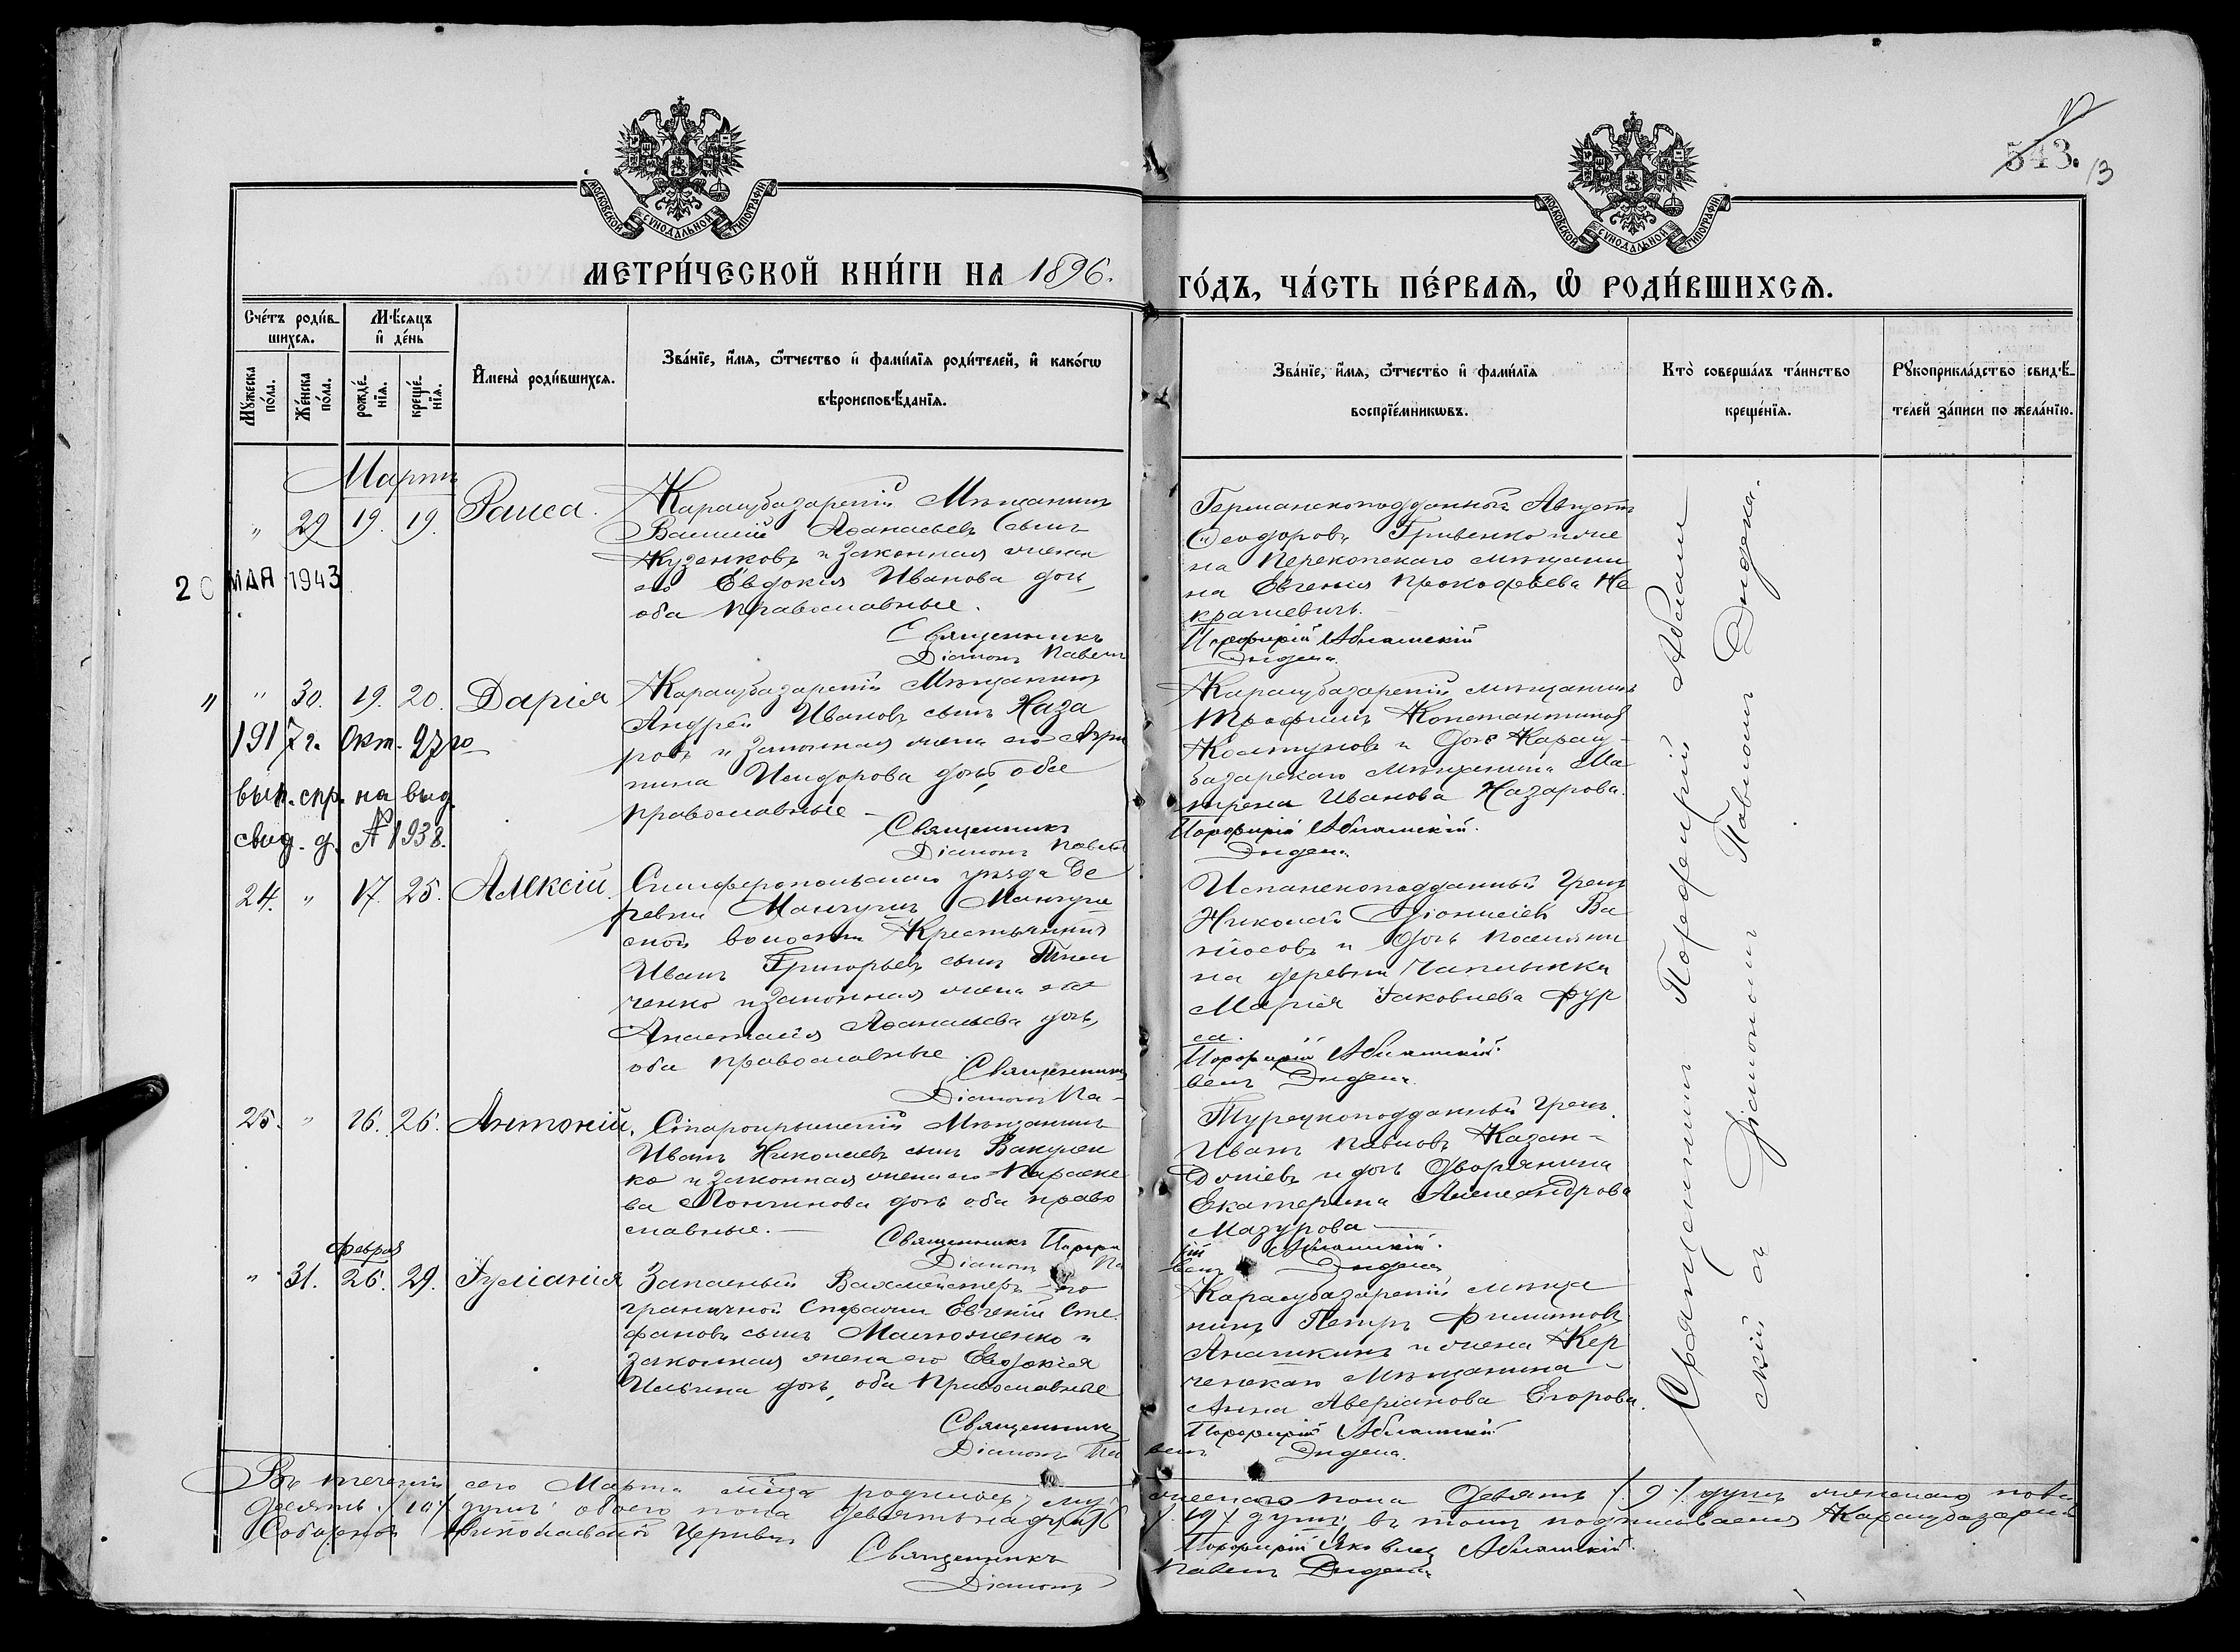 543. 13
МОСКОВСКОЙ СѴНОДАЛЬНОЙ ТИПОГРАФІИ
МОСКОВСКОЙ СѴНОДАЛЬНОЙ ТИПОГРАФІИ
МЕТРИ́ЧЕСКОЙ КНИ́ГИ НА 1896. ГО́ДЪ, ЧА́СТЬ ПЕ́РВАѦ, Ѽ РОДИ́ВШИХСѦ.
Сче́тъ роди́в-
шихсѧ.
Мѣ́сѧцъ
и҆ де́нь
Мꙋ́жеска по́ла.
Же́нска по́ла.
рожде́-
нїѧ.
креще́-
нїѧ.
И҆мена̀ роди́вшихсѧ.
Зва́нїе, и҆́мѧ, ѻ҆́тчество и҆ фами́лїѧ роди́телей, и҆ како́гѡ
вѣроисповѣ́данїѧ.
Зва́нїе, и҆́мѧ, ѻ҆́тчество и҆ фами́лїѧ
воспрїе́мникѡвъ.
Кто̀ соверша́лъ та́инство
креще́нїѧ.
Рꙋкоприкла́дство свидѣ́-
телей за́писи по жела́нїю.
Мартъ
" 29 19. 19. Раиса.
Карасубазарскій Мѣщанинъ
Василій Аѳанасьевъ Сынъ
Кузенковъ и Законная жена
его Евдокия Иванова дочь,
оба православные.
Священникъ
Діаконъ Павелъ
Германскоподданный Августъ
Ѳеодоровъ Гривенко и же
на Перекопскаго мѣщани
на Евгения Прокофьева Не
крашевичъ.
Порфирій
20 МАЯ 1943
" " 30. 19. 20. Дарія
Карасубазарскій Мѣщанинъ
Андрей Ивановъ сынъ Наза
ровъ и Законная жена его Агри
пина Исидорова дочь, оба
православные
Священникъ
Діаконъ Павелъ
Карасубазарскій мѣщанинъ
Трофимъ Константиновъ
Колтуновъ и Дочь Карасу-
базарскаго мѣщанина Ма
трена Иванова Назарова.
Порфирій
1917 г. Окт. 27го
вып. спр. на выд.
свид. д. № 1938.
24. " 17. 25. Алексій.
Симферопольскаго уѣзда де
ревни Мангушъ Мангуш
ской волости Крестьянинъ
Иванъ Григорьевъ сынъ
ченко и Законная жена его
Анастасія Аѳанасьева дочь,
оба православные.
Священникъ
Діаконъ Па-
Испанскоподданный Грекъ
Николай Діонисіевъ Ва
и Дочь поселяни
на деревни Чаплынки
Марія Іаковлева Фур
са.
Порфирій
велъ
25. " 16. 26. Антоній.
Старокрымскій Мѣщанинъ
Иванъ Николаевъ сынъ Вакулен
ко и Законная жена его Параске
ва Логгинова дочь оба право
славные.
Священникъ Порфи
Діаконъ Па
Турецкоподданный Грекъ
Иванъ Павловъ Казан-
и дочь Дворянина
Екатерина Александрова
Мазурова
рій
велъ
Феврал
" 31. 26. 29. Іуліанія
Запасный Вахмейстеръ по
граничной Стражи Евгеній Сте
фановъ сынъ Малюженко и
Законная жена его Евдокія
Ильина дочь, оба Православные
Священникъ
Діаконъ Па
Карасубазарскій мѣща
нинъ Петръ Филиповъ
Апашкинъ и жена Кер
ченскаго Мѣщанина
Анна Аверіанова Егорова.
Порфирій
велъ
Священникъ Порфирій
скій съ Діакономъ Павломъ
Въ теченіи сего Марта мѣсяца родилось, му
жескаго пола Девять /9/ душъ женскаго пола
десять /10/ душъ, обоего пола девятьнадцать
/19/ душъ, въ томъ подписываемся Карасубазарск
Соборной Николаевской Церкви
Священникъ Порфирій Яковлевъ
Діаконъ Павелъ